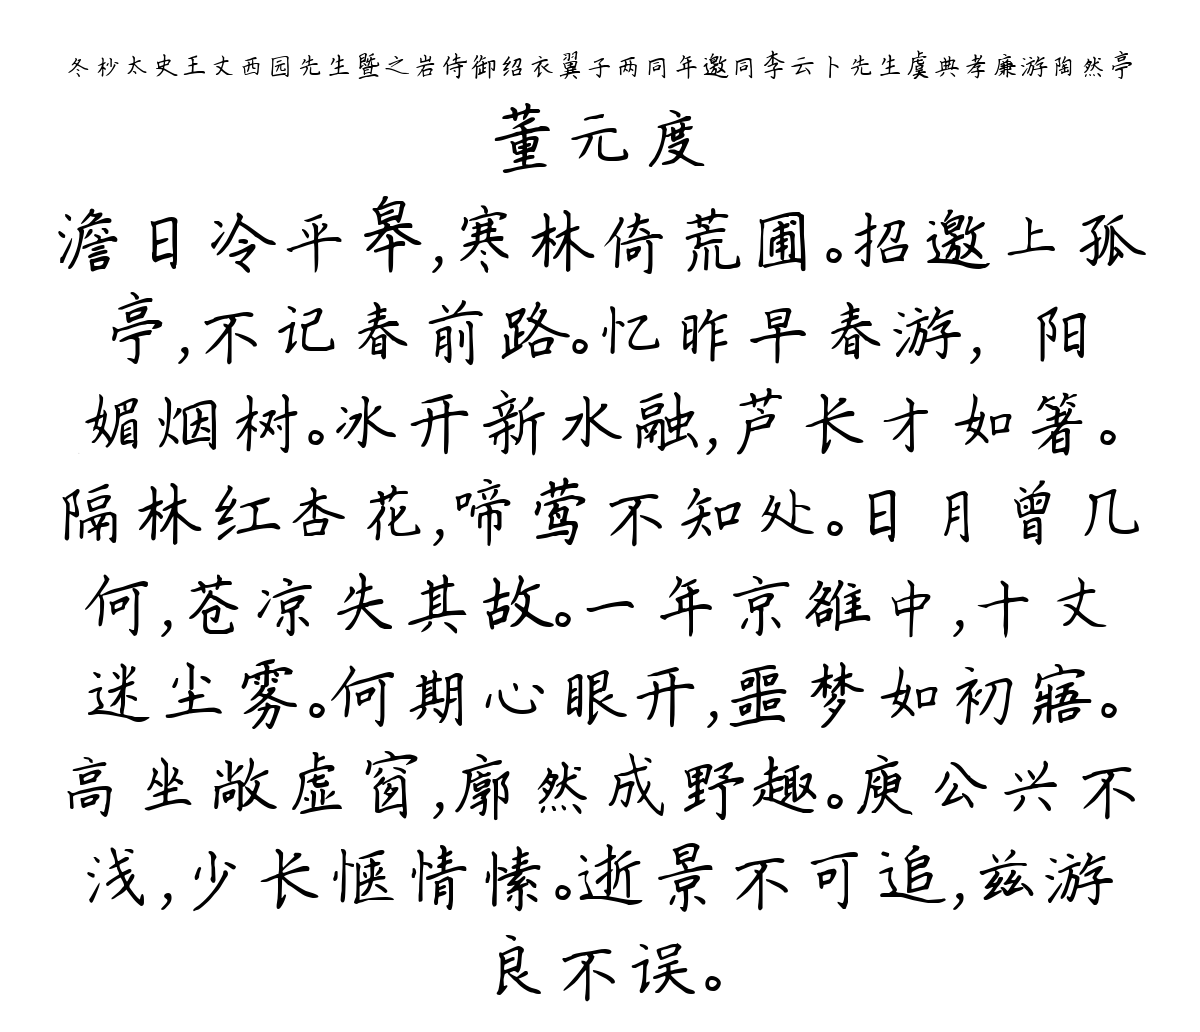 冬杪太史王丈西园先生暨之岩侍御绍衣翼子两同年邀同李云卜先生虞典孝廉游陶然亭
董元度
澹日冷平皋,寒林倚荒圃。招邀上孤
亭,不记春前路。忆昨早春游, 阳
媚烟树。冰开新水融,芦长才如箸。
隔林红杏花,啼莺不知处。日月曾几
何,苍凉失其故。一年京雒中,十丈
迷尘雾。何期心眼开,噩梦如初寤。
高坐敞虚窗,廓然成野趣。庾公兴不
浅,少长惬情愫。逝景不可追,兹游
良不误。